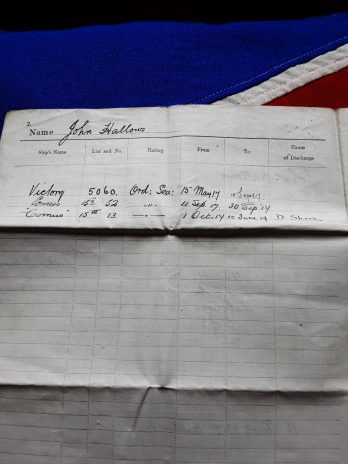 2.
Name John Hallows
Ship's Name List and No. Rating From To Cause of Discharge
Victory 5060. Ord: Sea: 15 May 17
Comus 15 22 -"- 11 Sep 17. 30 Sep 17
"Comus" 15 13 1 Oct. 17 10 June 19. D Shore